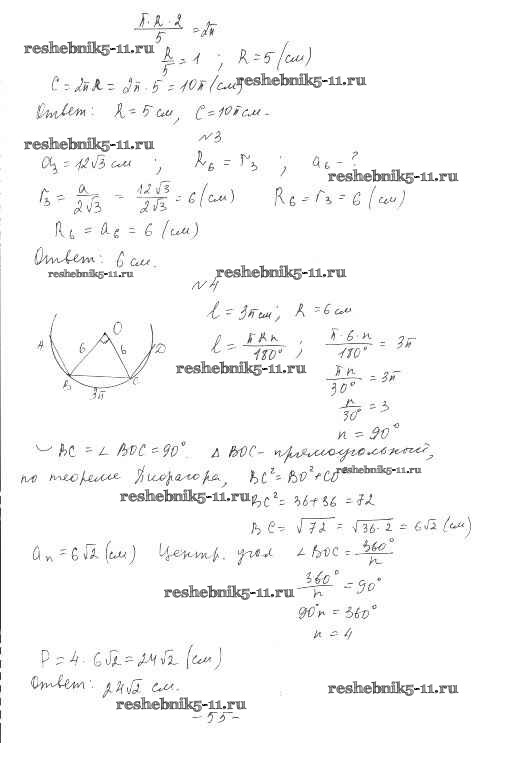 π·R·2/5 = 2π
reshebnik5-11.ru
R/5 = 1 ; R = 5 (см)
C = 2πR = 2π·5 = 10π (см)
reshebnik5-11.ru
Ответ: R = 5 см, C = 10π см.
reshebnik5-11.ru
№3
a₃ = 12√3 см ; R₆ = r₃ ; a₆ - ?
reshebnik5-11.ru
r₃ = a/2√3 = 12√3/2√3 = 6 (см) R₆ = r₃ = 6 (см)
R₆ = a₆ = 6 (см)
Ответ: 6 см.
reshebnik5-11.ru reshebnik5-11.ru
№4
l = 3π см; R = 6 см
l = πRn/180° ; π·6·n/180° = 3π
reshebnik5-11.ru
πn/30° = 3π
n/30° = 3
n = 90°
O
A
6 6
D
B C
3π
◡BC = ∠BOC = 90°. △BOC - прямоугольный,
по теореме Пифагора, BC² = BO² + CO²
reshebnik5-11.ru
reshebnik5-11.ru
BC² = 36 + 36 = 72
BC = √72 = √36·2 = 6√2 (см)
aₙ = 6√2 (см) Центр. угол ∠BOC = 360°/n
reshebnik5-11.ru
360°/n = 90°
90°n = 360°
n = 4
P = 4·6√2 = 24√2 (см)
Ответ: 24√2 см.
reshebnik5-11.ru
reshebnik5-11.ru
-55-